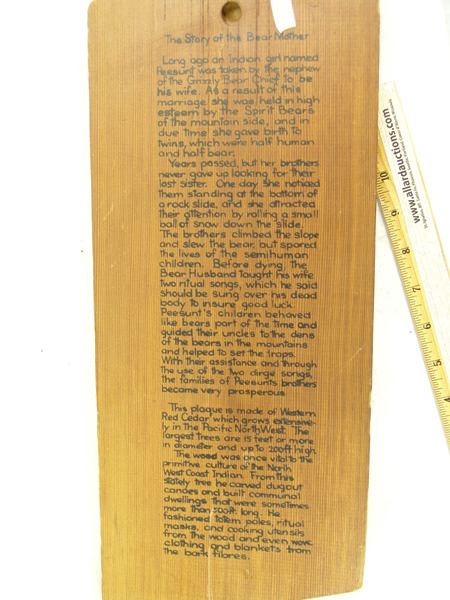 The Story of the Bear Mother
Long ago an Indian girl named
Peesunt was taken by the nephew
of the Grizzly Bear Chief to be
his wife. As a result of this
marriage she was held in high
esteem by the Spirit Bears
of the mountain side, and in
due time she gave birth to
twins, which were half human
and half bear.
Years passed, but her brothers
never gave up looking for their
lost sister. One day she noticed
them standing at the bottom of
a rock slide, and she attracted
their attention by rolling a small
ball of snow down the slide.
The brothers climbed the slope
and slew the bear, but spared
the lives of the semihuman
children. Before dying, the
Bear Husband taught his wife
two ritual songs, which he said
should be sung over his dead
body to insure good luck.
Peesunt's children behaved
like bears part of the time and
guided their uncles to the dens
of the bears in the mountains
and helped to set the traps.
With their assistance and through
the use of the two dirge songs,
the families of Peesunts brothers
became very prosperous
This plaque is made of Western
Red Cedar which grows extensive-
ly in The Pacific NorthWest. The
largest trees are 15 feet or more
in diameter and up to 200ft high.
The wood was once vital to the
primitive culture of the North
West Coast Indian. From this
stately tree he carved dugout
canoes and built communal
dwellings that were sometimes
more than 500ft. long. He
fashioned totem poles, ritual
masks, and cooking utensils
from the wood and even wove
clothing and blankets from
the bark fibres.
www.allardauctions.com
10
9
8
7
6
5
4